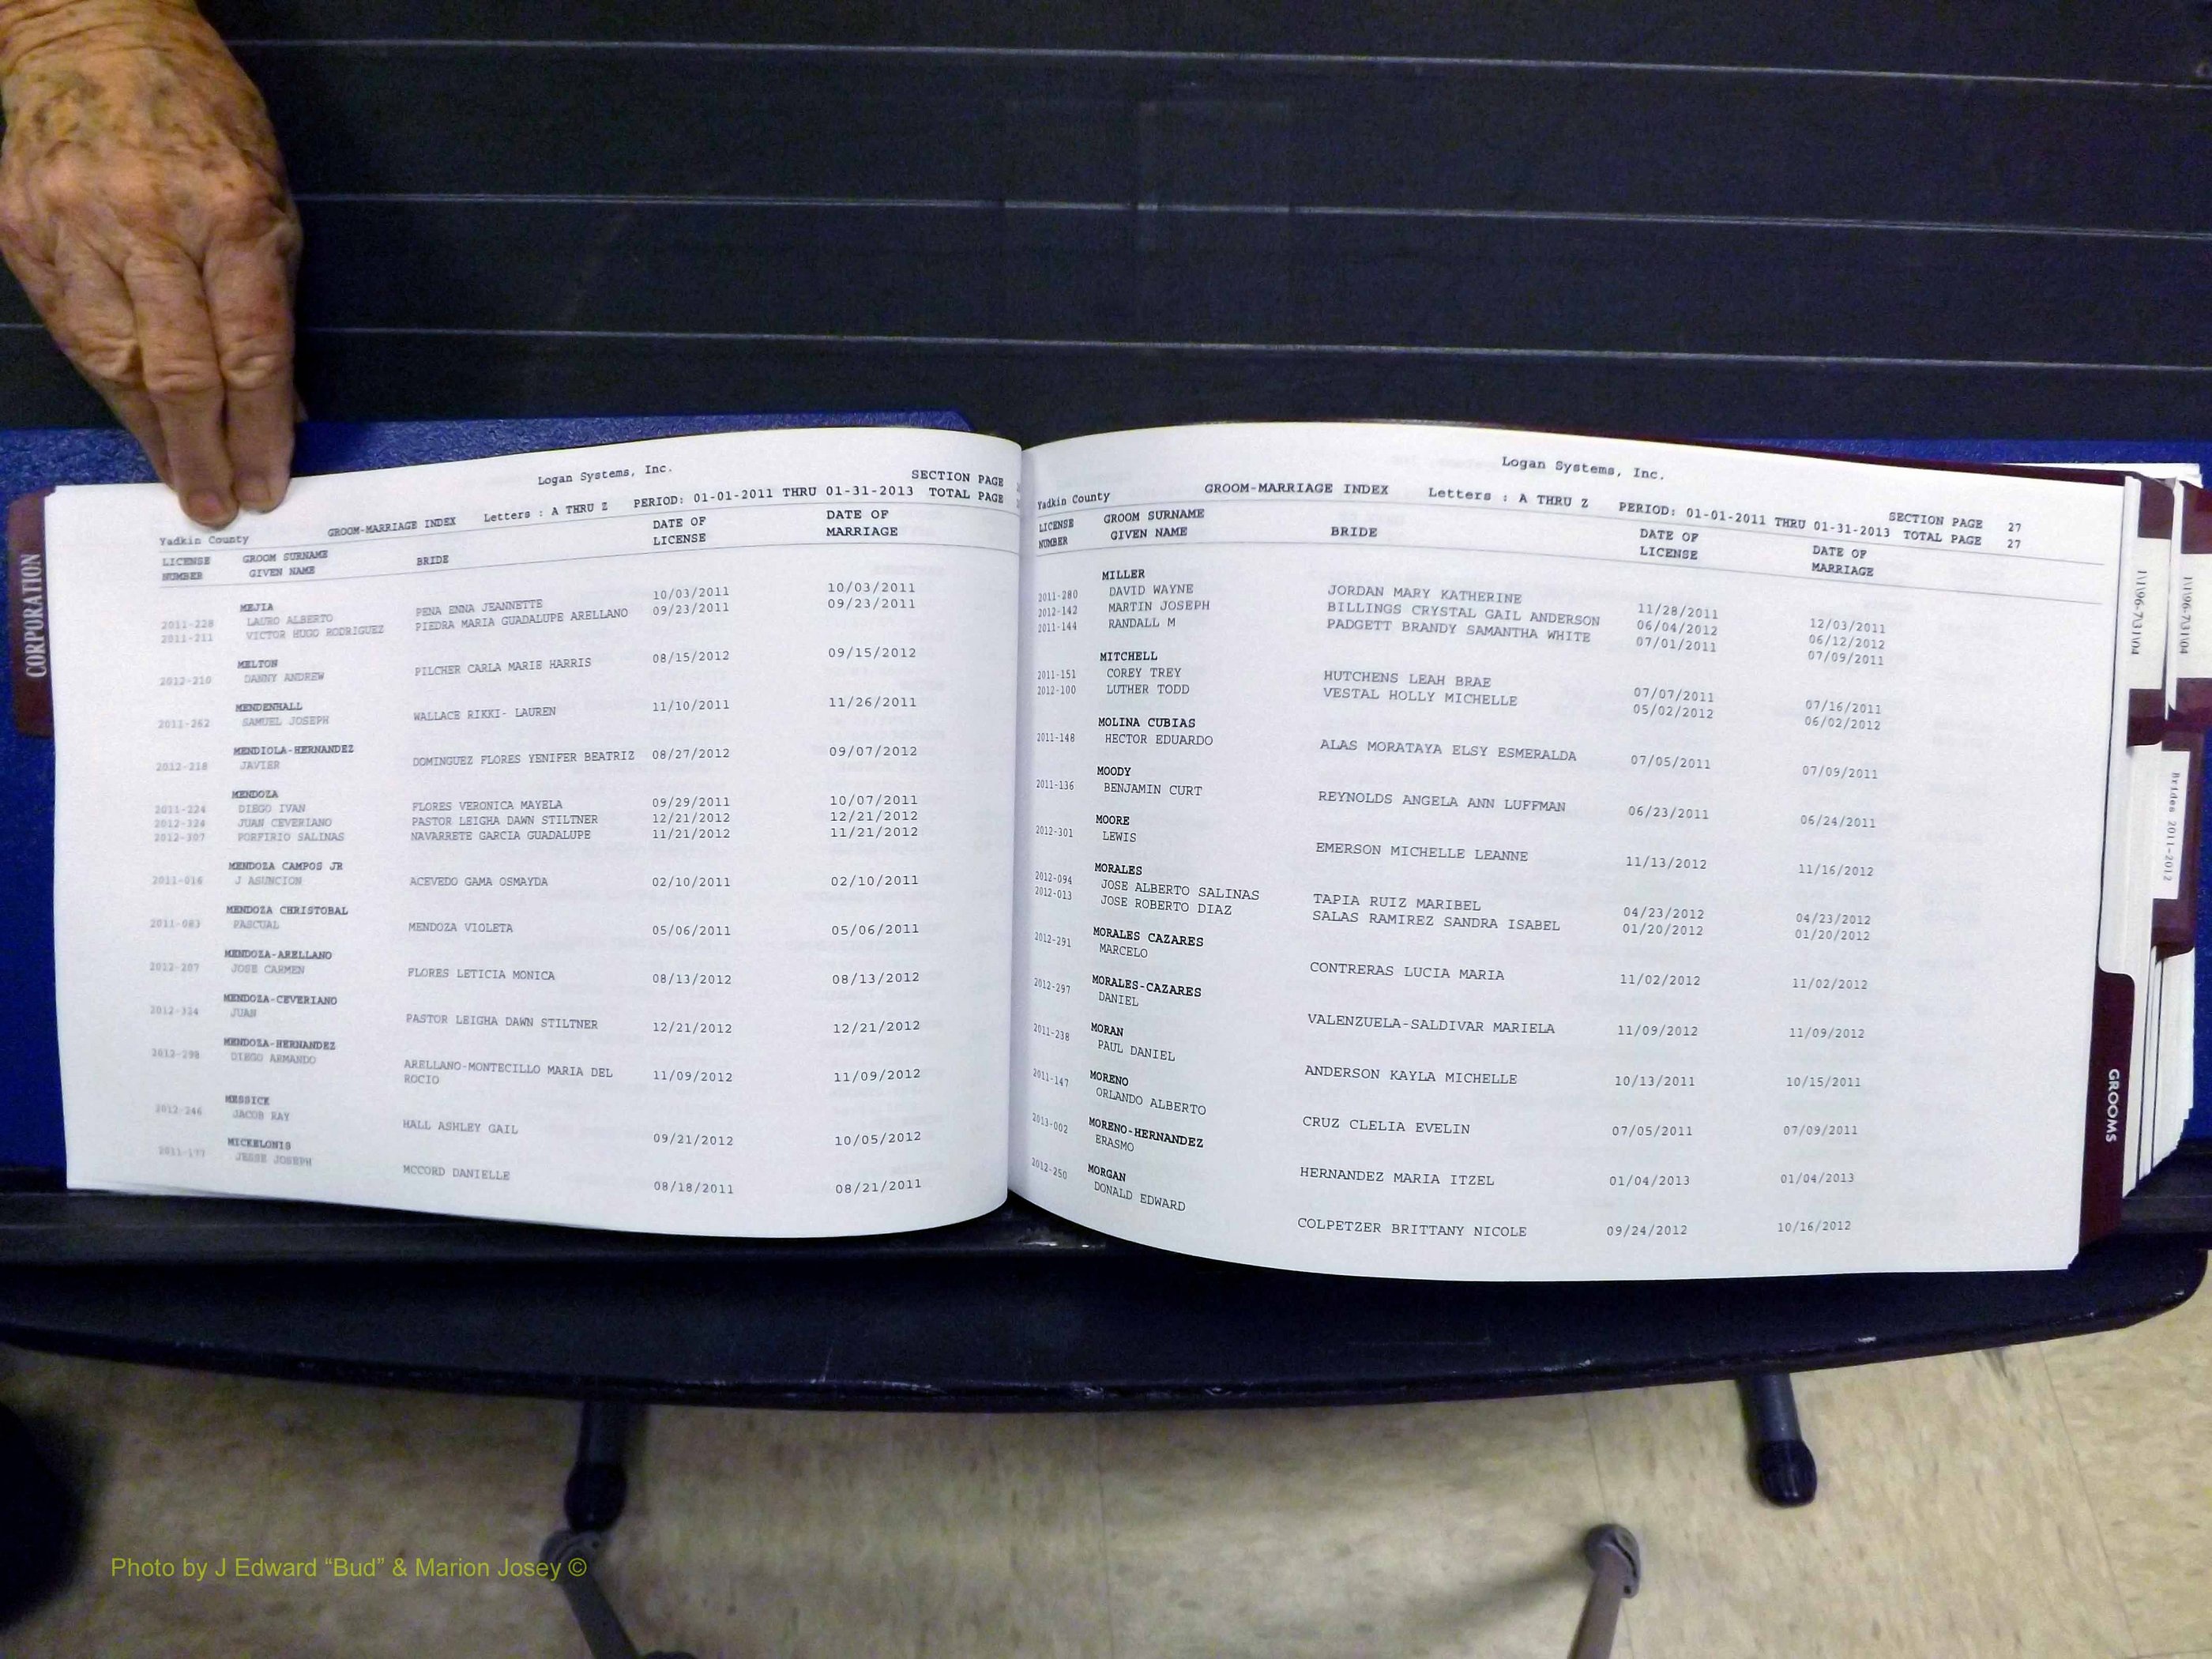 CORPORATION
Logan Systems, Inc.
SECTION PAGE
Yadkin County GROOM-MARRIAGE INDEX Letters : A THRU Z PERIOD: 01-01-2011 THRU 01-31-2013 TOTAL PAGE
LICENSE GROOM SURNAME DATE OF DATE OF
NUMBER GIVEN NAME BRIDE LICENSE MARRIAGE
MEJIA
2011-228 LAURO ALBERTO PENA ENNA JEANNETTE 10/03/2011 10/03/2011
2011-211 VICTOR HUGO RODRIGUEZ PIEDRA MARIA GUADALUPE ARELLANO 09/23/2011 09/23/2011
MELTON
2012-210 DANNY ANDREW PILCHER CARLA MARIE HARRIS 08/15/2012 09/15/2012
MENDENHALL
2011-262 SAMUEL JOSEPH WALLACE RIKKI- LAUREN 11/10/2011 11/26/2011
MENDIOLA-HERNANDEZ
2012-218 JAVIER DOMINGUEZ FLORES YENIFER BEATRIZ 08/27/2012 09/07/2012
MENDOZA
2011-224 DIEGO IVAN FLORES VERONICA MAYELA 09/29/2011 10/07/2011
2012-324 JUAN CEVERIANO PASTOR LEIGHA DAWN STILTNER 12/21/2012 12/21/2012
2012-307 PORFIRIO SALINAS NAVARRETE GARCIA GUADALUPE 11/21/2012 11/21/2012
MENDOZA CAMPOS JR
2011-016 J ASUNCION ACEVEDO GAMA OSMAYDA 02/10/2011 02/10/2011
MENDOZA CHRISTOBAL
2011-083 PASCUAL MENDOZA VIOLETA 05/06/2011 05/06/2011
MENDOZA-ARELLANO
2012-207 JOSE CARMEN FLORES LETICIA MONICA 08/13/2012 08/13/2012
MENDOZA-CEVERIANO
2012-324 JUAN PASTOR LEIGHA DAWN STILTNER 12/21/2012 12/21/2012
MENDOZA-HERNANDEZ
2012-298 DIEGO ARMANDO ARELLANO-MONTECILLO MARIA DEL 11/09/2012 11/09/2012
ROCIO
MESSICK
2012-246 JACOB RAY HALL ASHLEY GAIL 09/21/2012 10/05/2012
MICKELONIS
JESSE JOSEPH MCCORD DANIELLE 08/18/2011 08/21/2011
Logan Systems, Inc.
SECTION PAGE 27
Yadkin County GROOM-MARRIAGE INDEX Letters : A THRU Z PERIOD: 01-01-2011 THRU 01-31-2013 TOTAL PAGE 27
LICENSE GROOM SURNAME DATE OF DATE OF
NUMBER GIVEN NAME BRIDE LICENSE MARRIAGE
MILLER
2011-280 DAVID WAYNE JORDAN MARY KATHERINE 11/28/2011 12/03/2011
2012-142 MARTIN JOSEPH BILLINGS CRYSTAL GAIL ANDERSON 06/04/2012 06/12/2012
2011-144 RANDALL M PADGETT BRANDY SAMANTHA WHITE 07/01/2011 07/09/2011
MITCHELL
2011-151 COREY TREY HUTCHENS LEAH BRAE 07/07/2011 07/16/2011
2012-100 LUTHER TODD VESTAL HOLLY MICHELLE 05/02/2012 06/02/2012
MOLINA CUBIAS
2011-148 HECTOR EDUARDO ALAS MORATAYA ELSY ESMERALDA 07/05/2011 07/09/2011
MOODY
2011-136 BENJAMIN CURT REYNOLDS ANGELA ANN LUFFMAN 06/23/2011 06/24/2011
MOORE
2012-301 LEWIS EMERSON MICHELLE LEANNE 11/13/2012 11/16/2012
MORALES
2012-094 JOSE ALBERTO SALINAS TAPIA RUIZ MARIBEL 04/23/2012 04/23/2012
2012-013 JOSE ROBERTO DIAZ SALAS RAMIREZ SANDRA ISABEL 01/20/2012 01/20/2012
MORALES CAZARES
2012-291 MARCELO CONTRERAS LUCIA MARIA 11/02/2012 11/02/2012
MORALES-CAZARES
2012-297 DANIEL VALENZUELA-SALDIVAR MARIELA 11/09/2012 11/09/2012
MORAN
2011-238 PAUL DANIEL ANDERSON KAYLA MICHELLE 10/13/2011 10/15/2011
MORENO
2011-147 ORLANDO ALBERTO CRUZ CLELIA EVELIN 07/05/2011 07/09/2011
MORENO-HERNANDEZ
2013-002 ERASMO HERNANDEZ MARIA ITZEL 01/04/2013 01/04/2013
MORGAN
2012-250 DONALD EDWARD COLPETZER BRITTANY NICOLE 09/24/2012 10/16/2012
Brides 2011-2012
GROOMS
Photo by J Edward “Bud” & Marion Josey ©